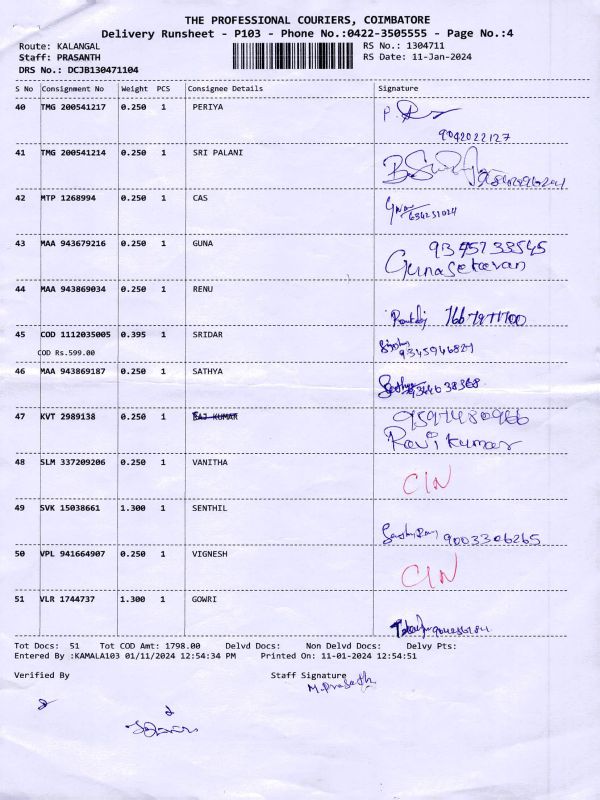 THE PROFESSIONAL COURIERS, COIMBATORE
Delivery Runsheet - P103 - Phone No.:0422-3505555 - Page No.:4
Route: KALANGAL RS No.: 1304711
Staff: PRASANTH RS Date: 11-Jan-2024
DRS No.: DCJB130471104
S No Consignment No Weight PCS Consignee Details Signature
40 TMG 200541217 0.250 1 PERIYA
9042022127
41 TMG 200541214 0.250 1 SRI PALANI
42 MTP 1268994 0.250 1 CAS
43 MAA 943679216 0.250 1 GUNA 9345733545
Gunasekaran
44 MAA 943869034 0.250 1 RENU
45 COD 1112035005 0.395 1 SRIDAR
COD Rs.599.00
46 MAA 943869187 0.250 1 SATHYA
47 KVT 2989138 0.250 1 RAJ KUMAR 9597480966
Ravi kumar
48 SLM 337209206 0.250 1 VANITHA
CIN
49 SVK 15038661 1.300 1 SENTHIL
9003306265
50 VPL 941664907 0.250 1 VIGNESH
CIN
51 VLR 1744737 1.300 1 GOWRI
Tot Docs: 51 Tot COD Amt: 1798.00 Delvd Docs: Non Delvd Docs: Delvy Pts:
Entered By :KAMALA103 01/11/2024 12:54:34 PM Printed On: 11-01-2024 12:54:51
Verified By Staff Signature
M. Prasath